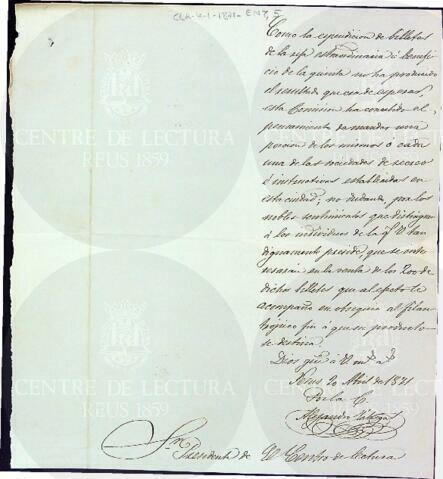 CLR-4-1-1871- ENT, 5
Como la espendicion de billetes
de la rifa estraordinaria á benefi
cio de la quinta no ha producido
el resultado que era de esperar,
esta Comision ha concebido el
pensamiento de mandar una
porcion de los mismos á cada
una de las sociedades de recreo
é instructivas establecidas en
esta ciudad; no dudando, por los
nobles sentimientos que distinguen
á los individuos de la q.e V. tan
dignamente preside, que se inte
resarán en la venta de los 200 de
dichos billetes que al efecto le
acompaño en obsequio al filan
trópico fin á que su producto
se destina.
Dios gue á V. ms as
Reus 20 Abril de 1871
Por la C.
Alejandro
Sr. Presidente de El Centro de Lectura
CENTRE DE LECTURA
REUS 1859
CENTRE DE LECTURA
REUS 1859
CENTRE DE LECTURA
REUS 1859
CENTRE DE LECTURA
REUS 1859